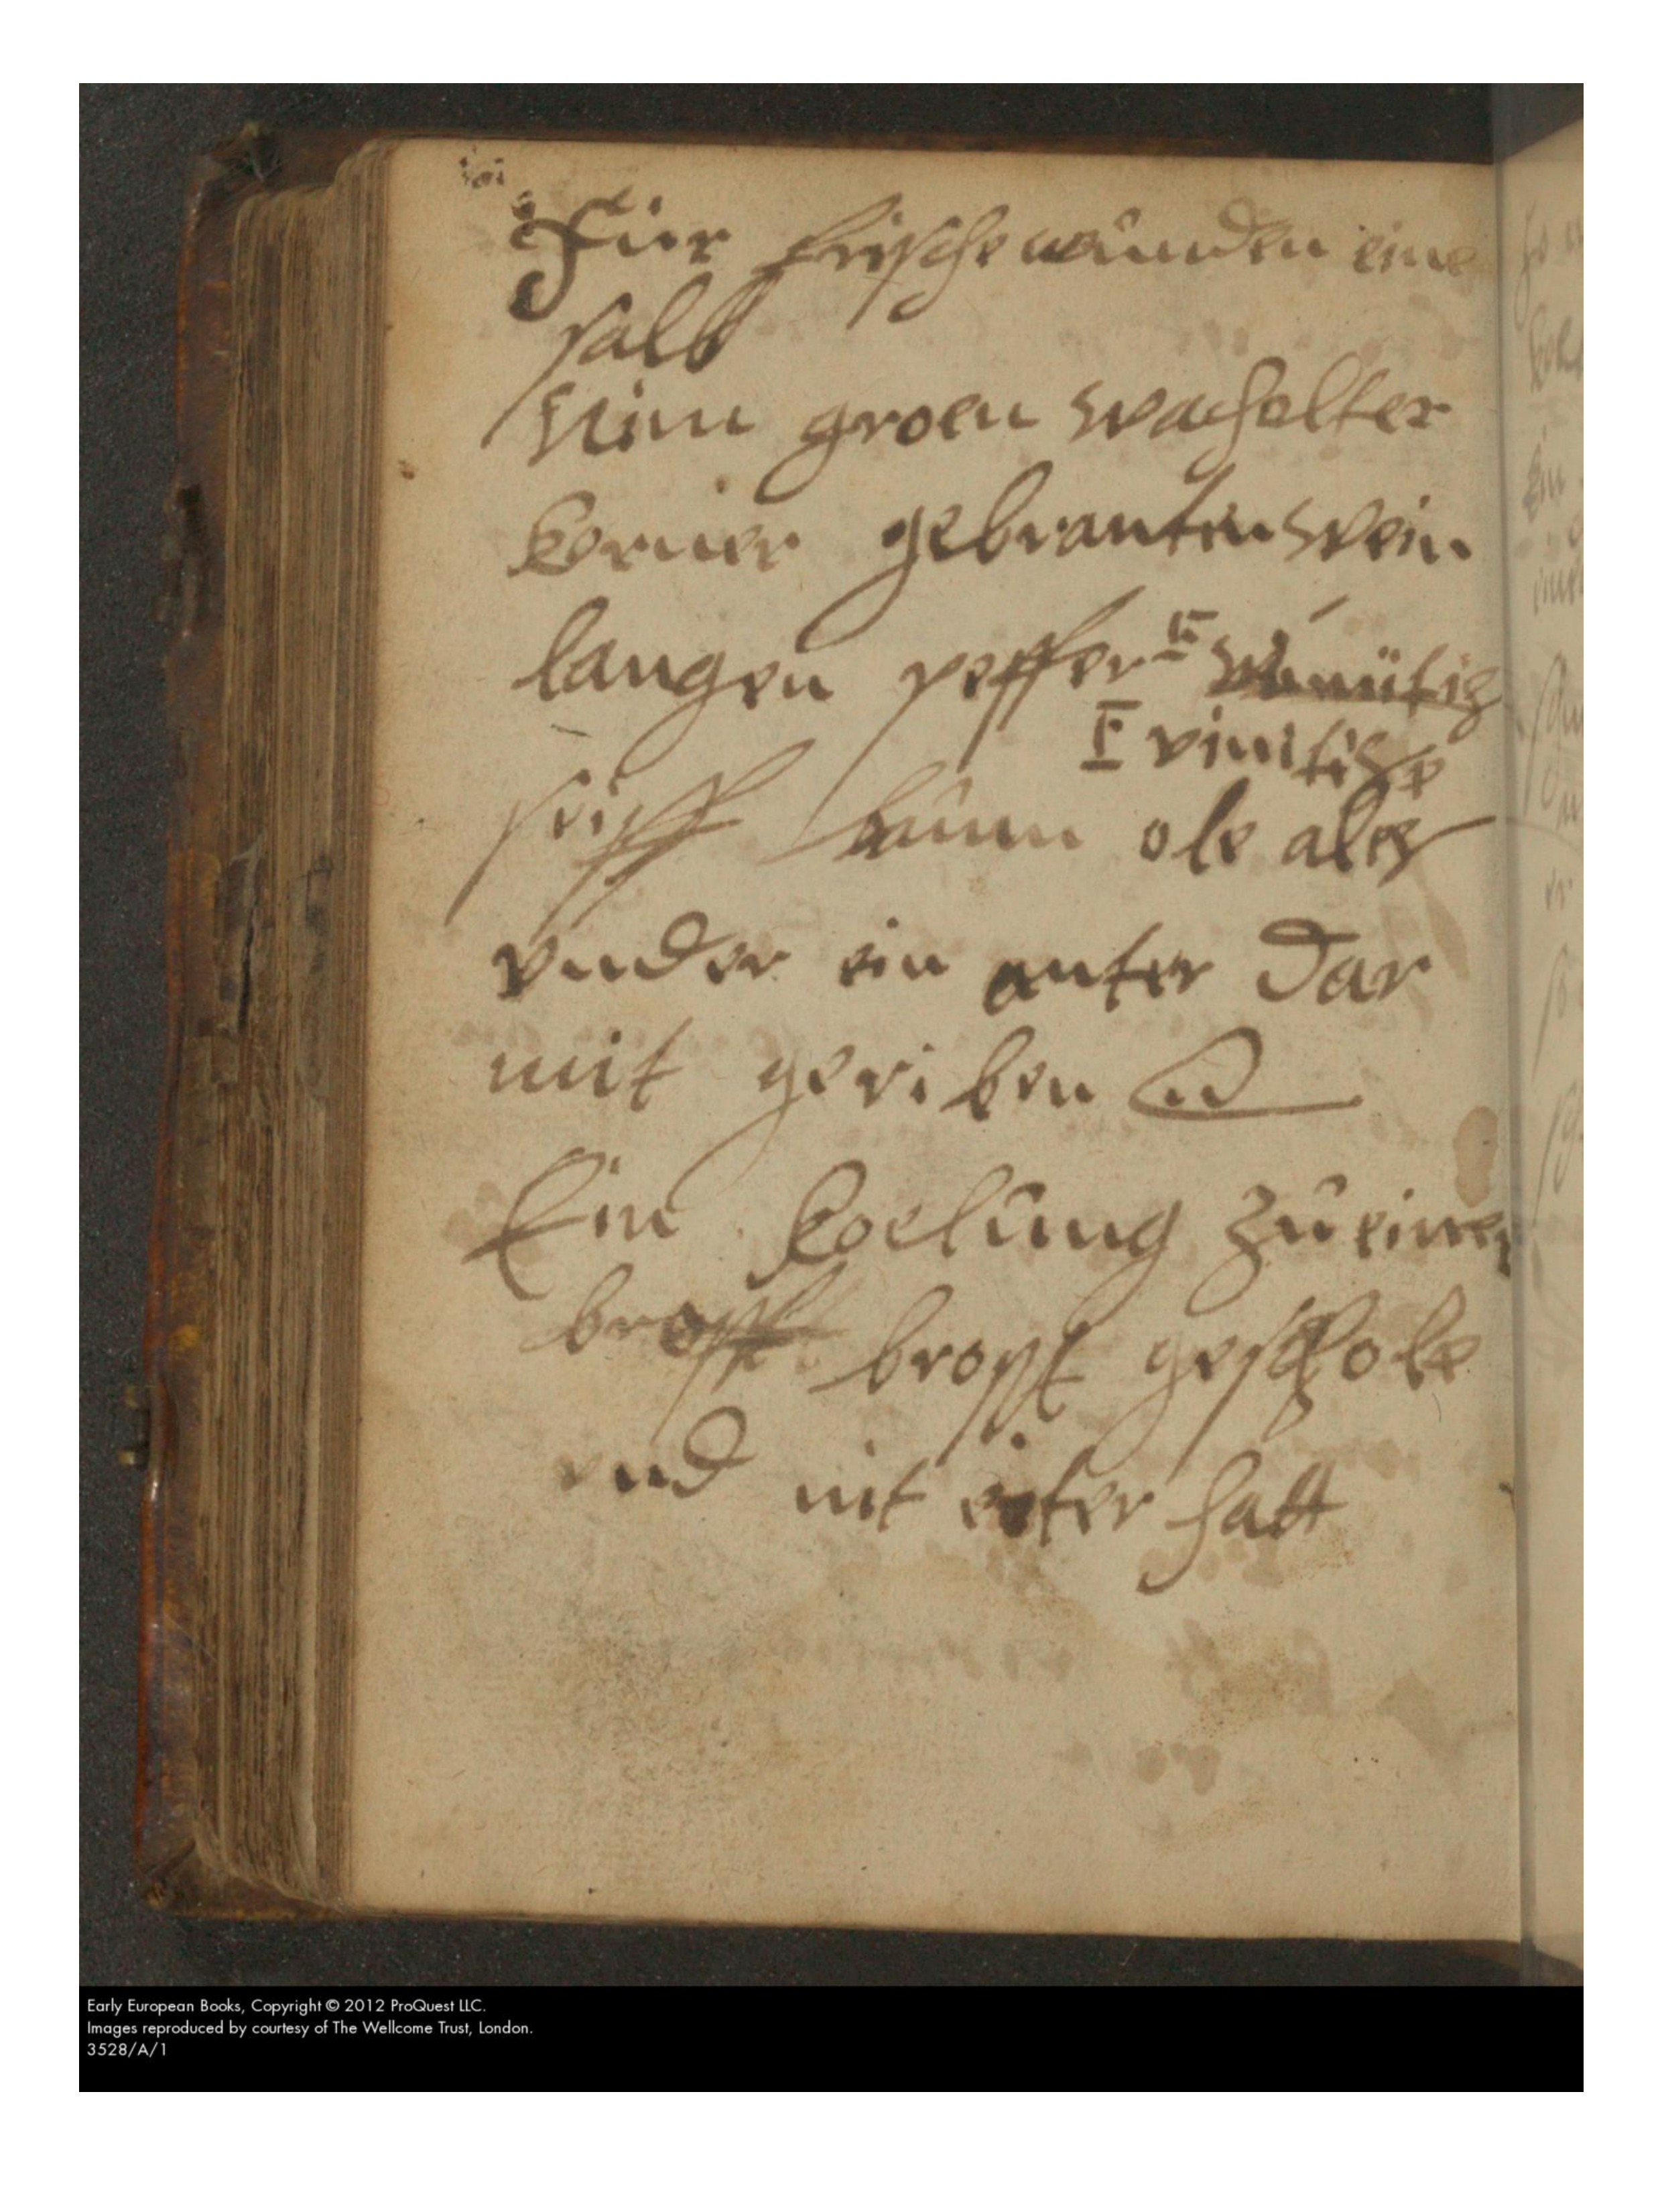 Für frische wûnden eine
salb
Nim groen wachelter
kerner gebranten wein
langen peffer
seiff baûm ole ales
vnder ein anter dar
mit geriben
Ein koelûng zû einer
bropff bropft geschole
vnd nit eiter hatt
Early European Books, Copyright © 2012 ProQuest LLC.
Images reproduced by courtesy of The Wellcome Trust, London.
3528/A/1